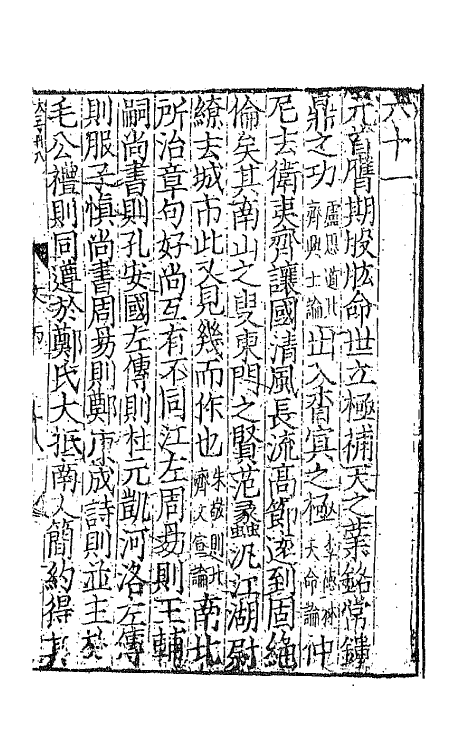 六十一
元首膺期股肱命世立極補天之業銘常鏤
鼎之功盧思道北齊興亡論出入杳冥之極李德林天命論仲
尼去衛夷齊讓國清風長流高節逺到固絶
倫矣其南山之叟東門之賢范蠡汎江湖尉
繚去城市此又見幾而作也朱敬則北齊文宣論南北
所治章句好尚互有不同江左周易則王輔
嗣尚書則孔安國左傳則杜元凱河洛左傳
則服子慎尚書周易則鄭康成詩則並主於
毛公禮則同遵於鄭氏大抵南人簡約得其